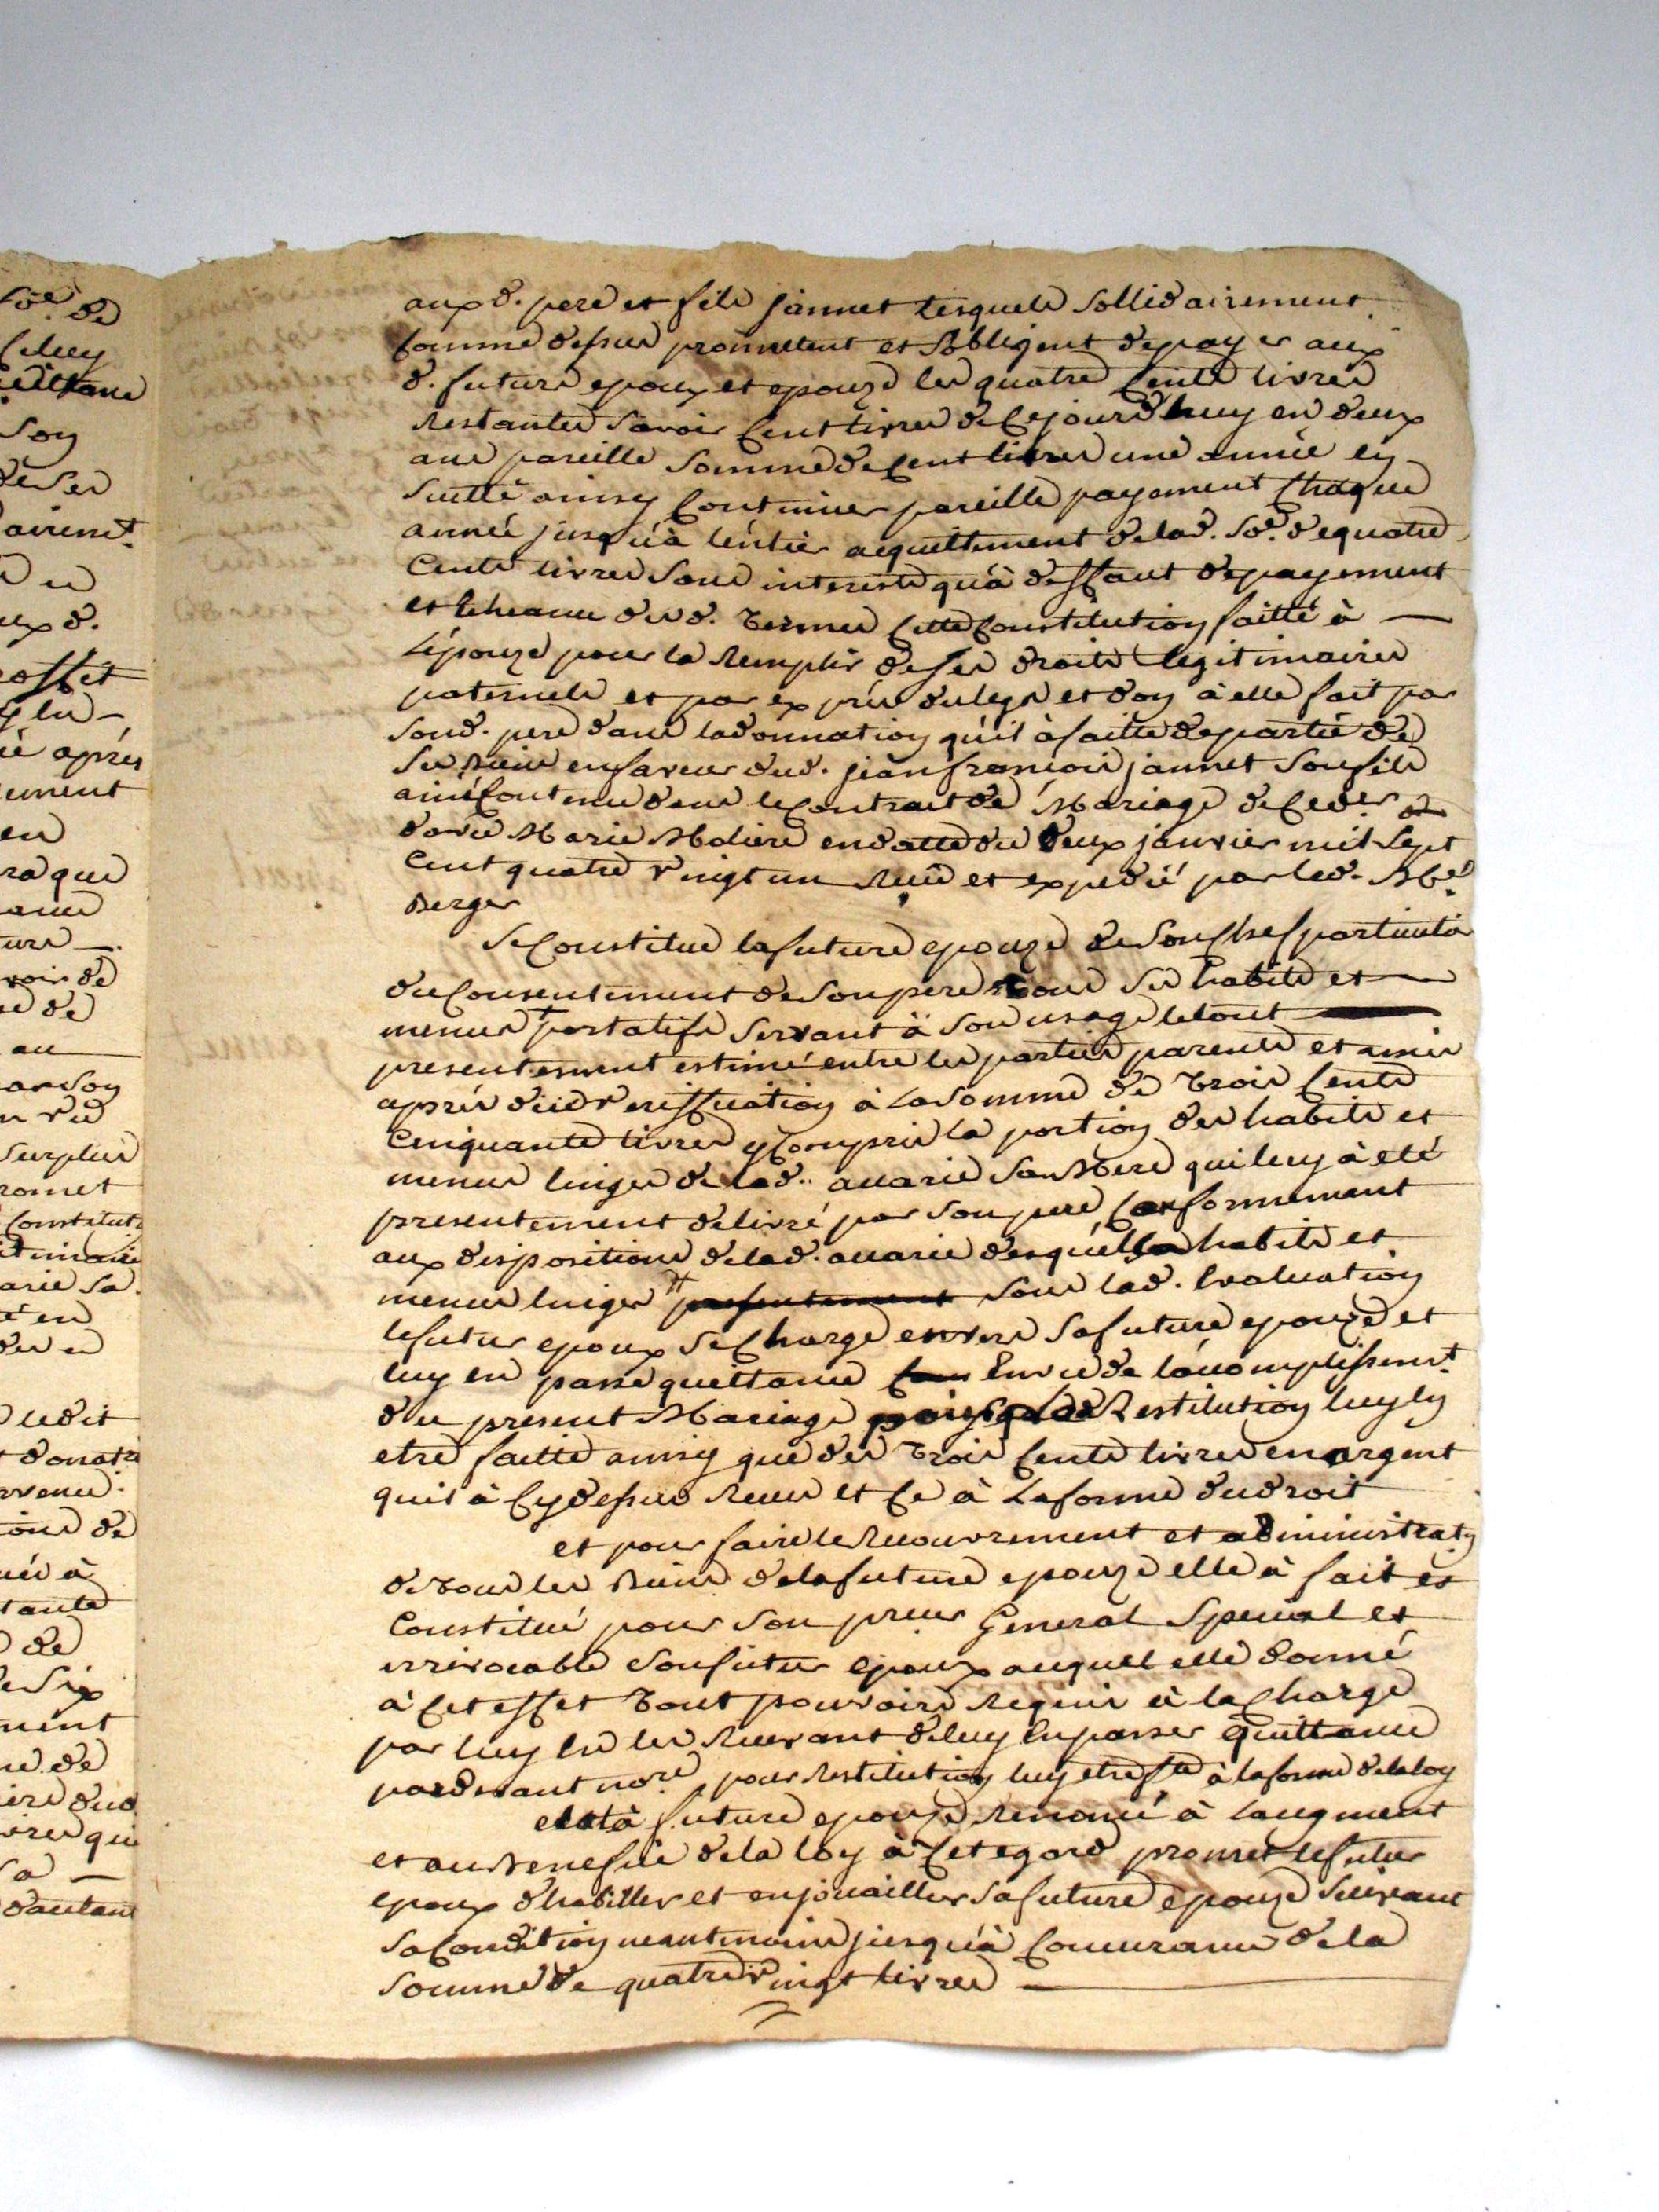 soe. de
Celuy
quittance
son
de ses
airemt.
en
aux d.
coffret
les
après
ement
en
ra que
ance
ure
voir de
de
au
par son
en vue
surplus
promet
Constitut
itimaire
arie sa
en
des
ledit
donat
venu
ions de
à
tante
de
de six
ment
de
ere dud.
livres qui
sa
dautant
aux d. pere et fils jannet lesquels sollidairement
Comme dessus promettent et sobligent depayer aux
d. futurs epoux et epouze les quatre Cents livres
Restantes savoir Cent livres de Cejourdhuy en deux
ans pareille somme de Cent livres une année en
suitte ainsy Continuer pareille payement Chaque
année jusqu'à lentier acquittement de lad. soe. de quatre
Cents livres sans interests qu'à deffaut depayement
et Echeance des d. termes Cette Constitution faitte à
Lépouze pour la Remplir de ses droits legitimaires
paternels et par exprès du legs et don à elle fait par
sond. pere dans ladonnation qu'il à faitte departie de
ses Biens enfaveur dud. jean françois jannet son fils
ainé Contenue dans le Contrat de Mariage de Ce der
davec Marie Moliere endatte du deux janvier mil sept
Cent quatre vingt un Reçu et expedié par led. Me
Berger
se Constitue lafuture epouze de son Chef particulier
du Consentement de son pere tous ses habits et
menus portatifs servant à son usage letout
presentement estimé entre les parties parents et amis
après düe veriffication à La somme de trois Cents
Cinquante livres y Compris la portion des habits et
menus linges de lad. avarie sa Mere qui luy à eté
presentement delivré par son pere Conformement
aux dispositions de lad. avarie desquels habits et
menus linges presentement sous lad. Evaluation
lefutur epoux se Charge envers sa future epouze et
luy en passe quittance En vue de lacomplissemt.
du present Mariage Restitution luy en
etre faitte ainsy que des trois Cents livres en argent
quil à Cydessus Reçus et Ce à La forme du droit
et pour faire le Recouvrement et administraton
de tous les Biens de lafuture epouze elle à fait et
Constitué pour son preur General special et
irrevocable son futur epoux auquel elle donne
à Cet effet tout pouvoirs Requis à la Charge
par luy En les Recevant de luy En passer quittance
pardevant nore. pour Restitution luy etre fte à la forme de la loy
et la future epouze Renonce à Laugment
et au Benefice de la loy à Cet egard promet le futur
epoux d'habiller et enjouailler sa future epouze suivant
sa Condition neantmoins jusqu'à Concurance de la
somme de quatre vingt livres